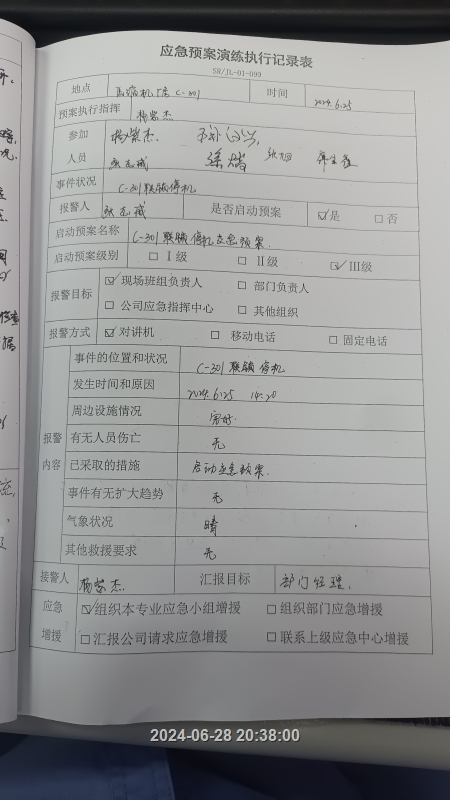 应急预案演练执行记录表
SH/JL-01-099
地点 压缩机厂房 C-301 时间 2024.6.25
预案执行指挥 杨紫杰
参加人员 杨紫杰.
张志诚
事件状况 C-301联锁停机
报警人 张志诚 是否启动预案 ☑是 □否
启动预案名称 C-301联锁停机应急预案.
启动预案级别 □Ⅰ级 □Ⅱ级 ☑Ⅲ级
报警目标 ☑现场班组负责人 □部门负责人
□公司应急指挥中心 □其他组织
报警方式 ☑对讲机 □移动电话 □固定电话
报警内容 事件的位置和状况 C-301联锁停机
发生时间和原因 2024.6.25 14:20
周边设施情况 完好.
有无人员伤亡 无
已采取的措施 启动应急预案.
事件有无扩大趋势 无
气象状况 晴
其他救援要求 无
接警人 杨紫杰. 汇报目标 部门经理.
应急增援 ☑组织本专业应急小组增援 □组织部门应急增援
□汇报公司请求应急增援 □联系上级应急中心增援
2024-06-28 20:38:00